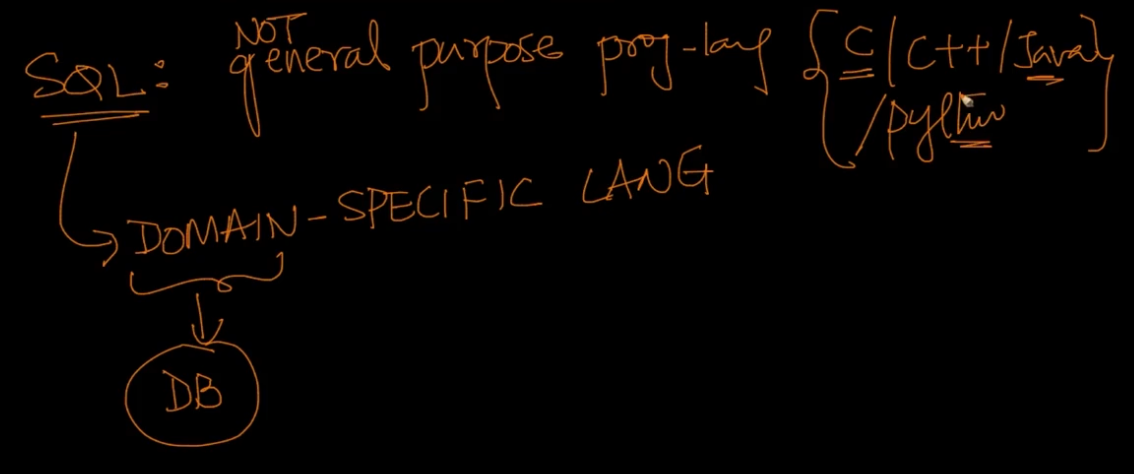 SQL: NOT general purpose prog-lang {C/C++/Java}
/python
DOMAIN-SPECIFIC LANG
DB